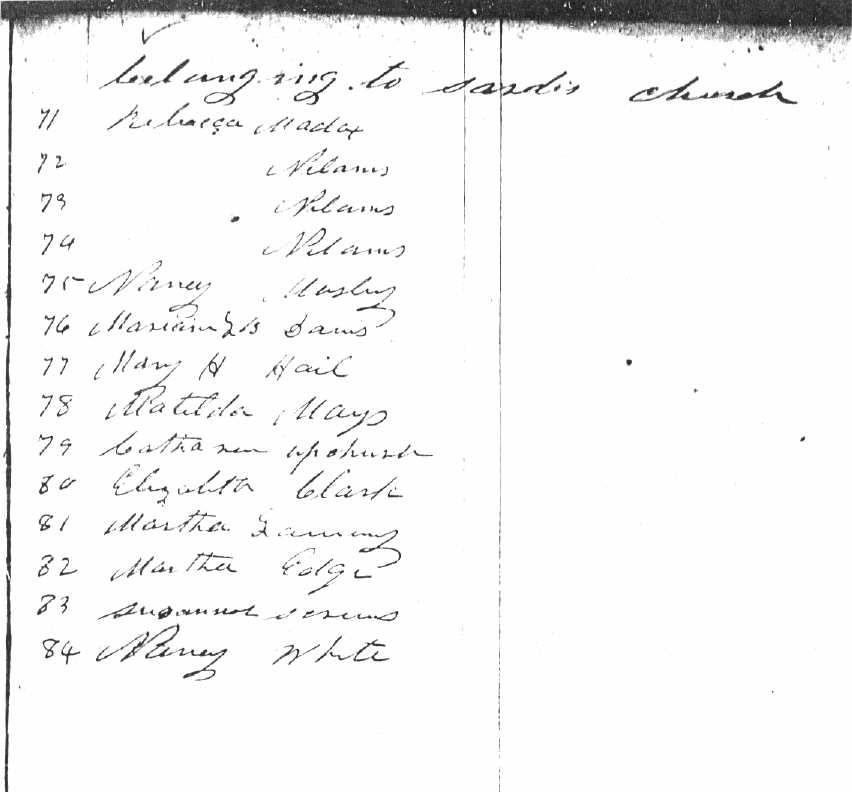 belonging to sardis church
71 Rebacca Madox
72 Nelams
73 Nelams
74 Nelams
75 Nancy Mosby
76 Davis
77 Mary H Hail
78 Matilda Mays
79 Catharen upchurch
80 Elizabeth Clark
81 Martha
82 Martha Edge
83 susannah
84 Nancy White